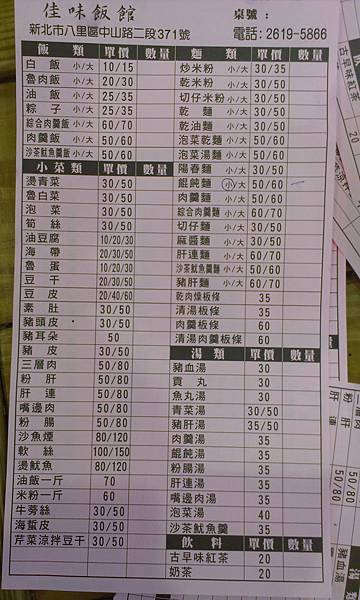 佳味飯館
桌號：
新北市八里區中山路二段371號
電話：2619-5866
飯類 單價 數量
白飯 小/大 10/15
魯肉飯 小/大 20/30
油飯 小/大 25/35
粽子 小/大 25/35
綜合肉羹飯 小/大 60/70
肉羹飯 小/大 50/60
沙茶魷魚羹飯 小/大 50/60
小菜類 單價 數量
燙青菜 30/50
魯白菜 30/50
泡菜 30/50
筍絲 30/50
油豆腐 10/20/30
海帶 20/30/50
魯蛋 10/20/30
豆干 20/30/50
豆皮 20/40/60
素肚 30/50
豬頭皮 30/50
豬耳朵 50
豬皮 30/50
三層肉 50/80
粉肝 50/80
肝連 50/80
嘴邊肉 50/80
粉腸 50/80
沙魚煙 80/120
軟絲 100/150
燙魷魚 80/120
油飯一斤 70
米粉一斤 60
牛蒡絲 30/50
海蜇皮 30/50
芹菜涼拌豆干 30/50
麵類 單價 數量
炒米粉 小/大 30/35
乾米粉 小/大 30/50
切仔米粉 小/大 30/50
乾麵 小/大 30/50
乾油麵 小/大 30/50
泡菜乾麵 小/大 50/60
泡菜湯麵 小/大 50/60
陽春麵 小/大 30/50
餛飩麵 小/大 50/60
肉羹麵 小/大 50/60
綜合肉羹麵 小/大 60/70
切仔麵 小/大 30/50
麻醬麵 小/大 30/50
肝連麵 小/大 60/70
沙茶魷魚羹麵 小/大 50/60
豬肝麵 小/大 60/70
乾肉燥板條 35
清湯板條 35
肉羹板條 60
清湯肉羹板條 60
湯類 單價 數量
豬血湯 30
貢丸 30
魚丸湯 30
青菜湯 30/50
豬肝湯 35/50
肉羹湯 35
餛飩湯 35
粉腸湯 35
肝連湯 35
嘴邊肉湯 35
泡菜湯 40
沙茶魷魚羹 35
飲料 單價 數量
古早味紅茶 20
奶茶 20